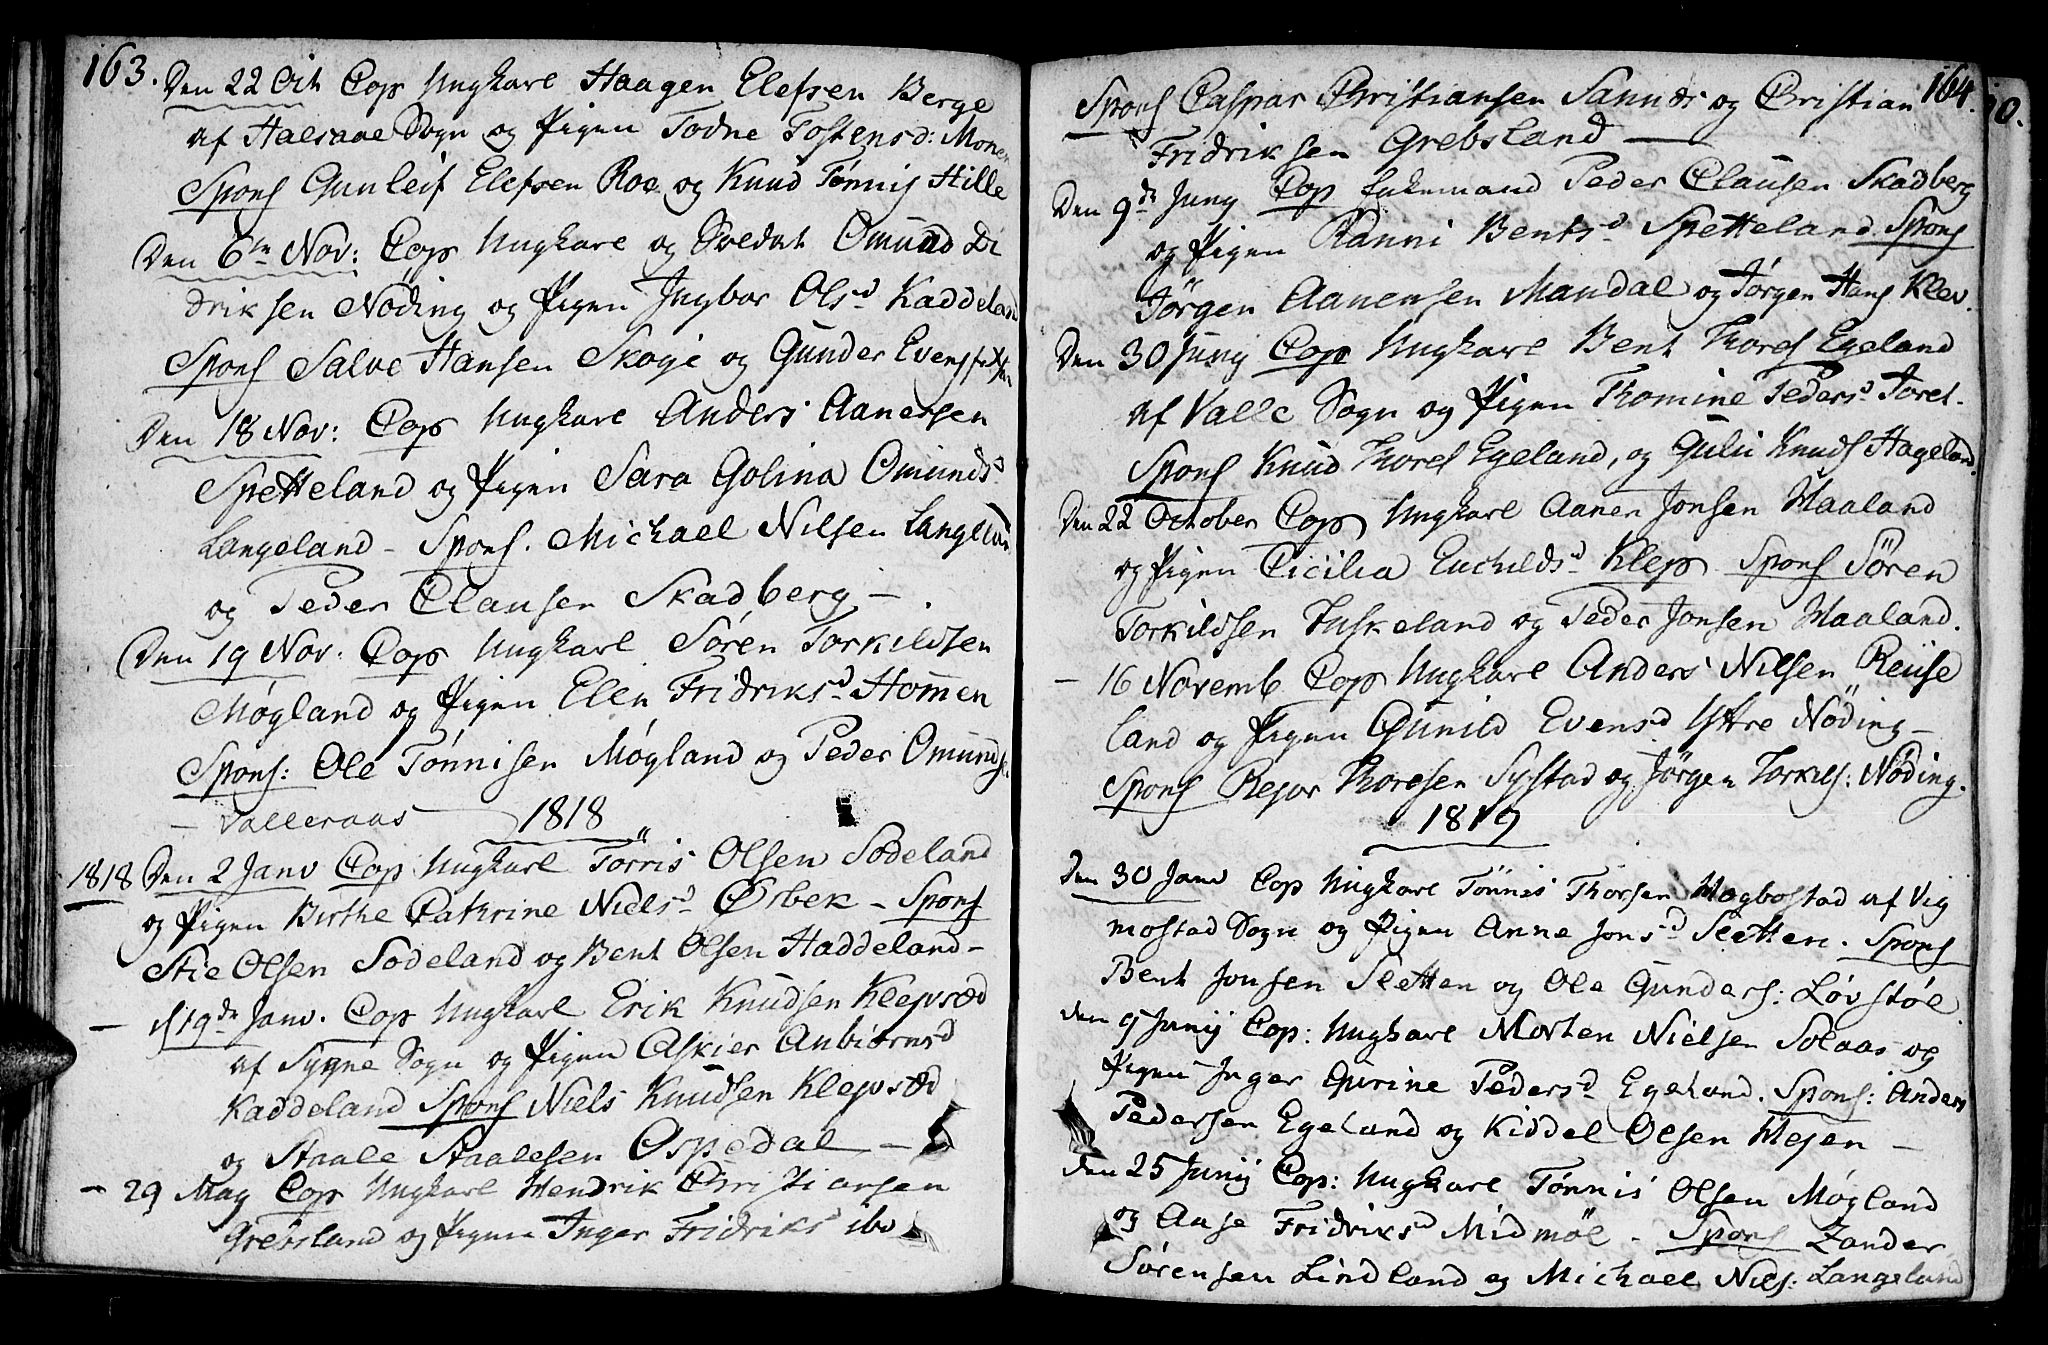 163. Den 22 Oct Cop Ungkarl Haagen Elefsen Berge
af Halsaae Sogn og Pigen Todne Tostensd: Monen
Spons Gunleif Elefsen Roe og Knud Tønnis Hille
Den 6te Nov: Cop Ungkarl og Soldat Omund Di
driksen Nøding og Pigen Ingbor Olsd Kaddeland
Spons Salve Hansen Skoje og Gunder Evens
Den 18 Nov: Cop Ungkarl Anders Aanensen
Spetteland og Pigen Sara Golina Omundsd
Langeland - Spons. Michael Nilsen Langeland
og Peder Clausen Skadberg -.
Den 19 Nov. Cop Ungkarl Søren Torkildsen
Møgland og Pigen Elen Fridriksd Hommen
Spons: Ole Tønnisen Møgland og Peder Omunds
- Valleraas 1818
1818 Den 2 Janv Cop Ungkarl Törris Olsen Sodeland
og Pigen Birthe Cathrine Nielsd Øsbek - Spons
Stie Olsen Sodeland og Bent Olsen Haddeland -
- d 19de Janv. Cop Ungkarl Erik Knudsen Klepsæd
af Sygne Sogn og Pigen Askier Anbiørnsd
Kaddeland Spons Niels Knudsen Klepsæd
og Staale Staalesen Ospedal -
- 29 May Cop Ungkarl Hendrik Christiansen
Grebsland og Pigen Inger Fridriksd ibd
164.
Spons Caspar Christiansen Sannæs og Christian
Fridriksen Grebsland -
Den 9de Juny Cop Enkemand Peder Clausen Skadberg
og Pigen Ranni Bentsd Spetteland Spons
Jörgen Aanensen Mandal og Jörgen Hans Klev.
Den 30 Junij Cop Ungkarl Bent Thores Egeland
af Valle Sogn og Pigen Thomine Pedersd Foret.
Spons Knud Thores Egeland, og Guli Knuds Hageland.
Den 22 October Cop Ungkarl Aanen Jonsen Haaland
og Pigen Cicilia Euchildsd Klep Spons Sören
Torkildsen Tuskeland og Peder Jonsen Haaland.
- 16 Novemb Cop Ungkarl Anders Nilsen Reise
land og Pigen Gunild Evensd Ystre Nöding -
Spons Rejer Thoresen Systad og Jörgen Torkils: Nöding.
1819
Den 30 Janv Cop Ungkarl Tönnis Thorsen Hogbostad af Vig
mostad Sogn og Pigen Anne Jonsd Sletten. Spons
Bent Jonsen Sletten og Ole Gunders: Løvstøl
Den 9 Junij Cop: Ungkarl Morten Nielsen Solaas og
Pigen Inger Gurine Pedersd Egeland. Spons: Anders
Pedersen Egeland og Kiddel Olsen Hejen -
Den 25 Junij Cop: Ungkarl Tønnis Olsen Møgland
og Anse Fridriksd Midmöl - Spons Zander
Sørensen Lindland og Michael Nils: Langeland